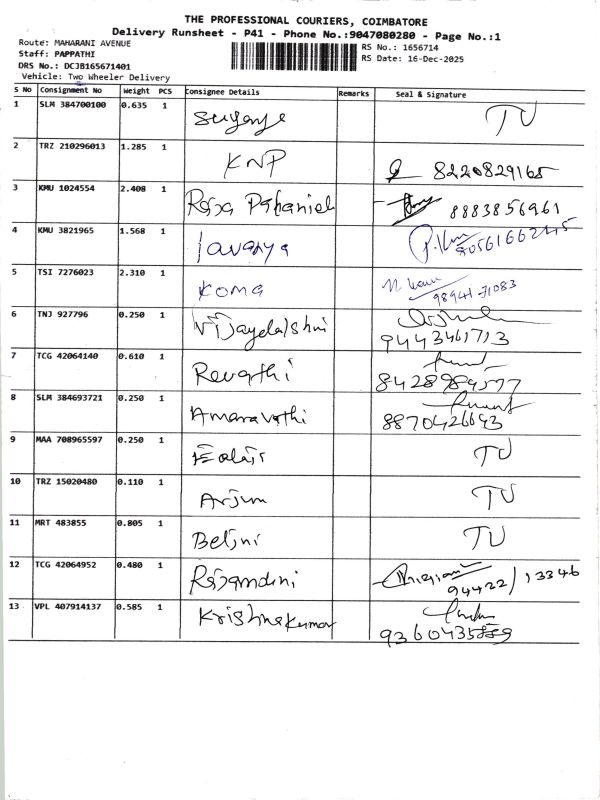 THE PROFESSIONAL COURIERS, COIMBATORE
Delivery Runsheet - P41 - Phone No.:9047080280 - Page No.:1
Route: MAHARANI AVENUE
Staff: PAPPATHI
DRS No.: DCJB165671401
Vehicle: Two Wheeler Delivery
RS No.: 1656714
RS Date: 16-Dec-2025
S No Consignment No Weight PCS Consignee Details Remarks Seal & Signature
1 SLM 384700100 0.635 1 TU
2 TRZ 210296013 1.285 1 KNP 8220829165
3 KMU 1024554 2.408 1 8883856961
4 KMU 3821965 1.568 1 lavanya
5 TSI 7276023 2.310 1 Koma 98941 71083
6 TNJ 927796 0.250 1 9443461713
7 TCG 42064140 0.610 1 Revathi
8 SLM 384693721 0.250 1 Amaravathi 8870426643
9 MAA 708965597 0.250 1 TU
10 TRZ 15020480 0.110 1 Arjun TU
11 MRT 483855 0.805 1 TU
12 TCG 42064952 0.480 1 94422/13346
13 VPL 407914137 0.585 1 Krishnakumar